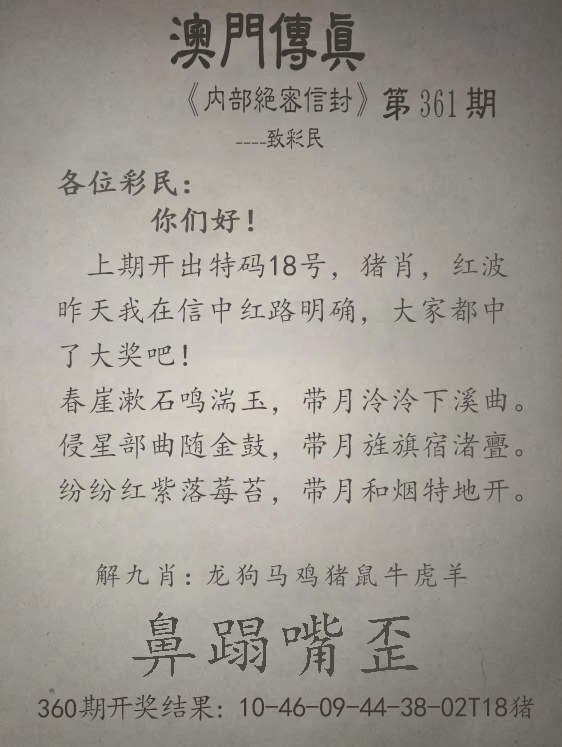 澳門傳眞
《内部絕密信封》第361期
----致彩民
各位彩民：
你们好！
上期开出特码18号，猪肖，红波
昨天我在信中红路明确，大家都中
了大奖吧！
春崖漱石鸣湍玉，带月泠泠下溪曲。
侵星部曲随金鼓，带月旌旗宿渚亹。
纷纷红紫落莓苔，带月和烟特地开。
解九肖：龙狗马鸡猪鼠牛虎羊
鼻蹋嘴歪
360期开奖结果：10-46-09-44-38-02T18猪